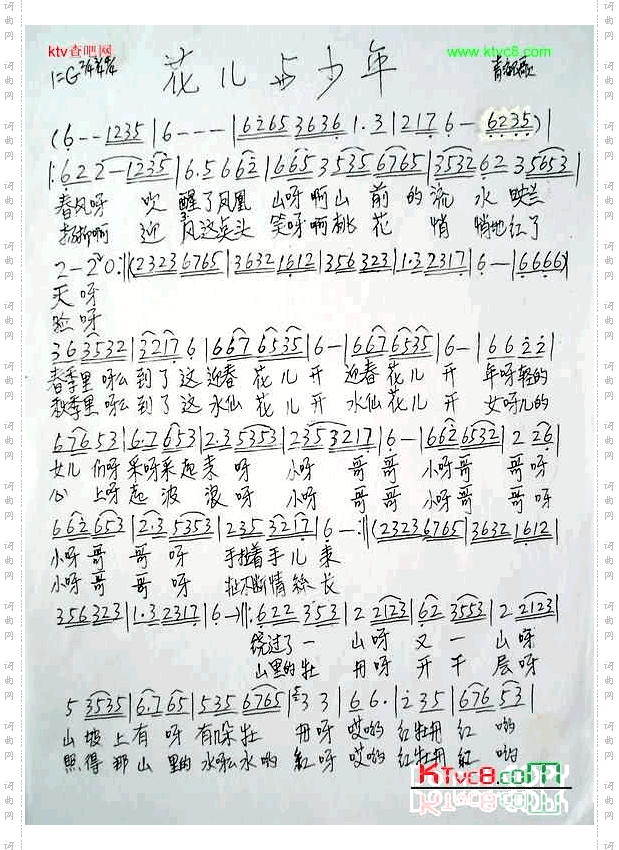 ktv查吧网
www.ktvc8.com
花儿与少年
1=G 2/4 3/4 4/4
青海民歌
(6--1235|6---|60265 3636|1·3|217 6-6235)|
|:622-1235|6·5 662|665 3535 6765|3532 62 35653|
春风呀 吹醒了凤凰 山呀啊山 前的流水 映兰
迎风这点头 笑呀啊桃花 悄悄地红了
2-20:||(2323 6765|3632 1612|356 323|1·3 2317|6-|6666)|
天呀
脸呀
36 3532|3217 6|667 6535|6-|667 6535|6-|66 22|
春季里呀么到了这迎春花儿开 迎春花儿开 年呀轻的
秋季里呀么到了这水仙花儿开 水仙花儿开 女呀儿的
676 53|6·7 653|2·3 5353|235 3217|6-|662 6532|2 26|
女儿们呀采呀采起来呀 小呀哥哥 小呀哥哥呀
心上呀起波浪呀 小呀哥哥 小呀哥哥呀
662 653|2·3 5353|235 3217|6-:||(2323 6765|3632 1612|
小呀哥哥呀 手挽着手儿来
小呀哥哥呀 扯不断情丝长
356 323|1·3 2317|6-)||:622 353|2 2123|62 3553|2 2123|
绕过了一山呀又一山呀
山里的牡丹呀开千层呀
5 3535|6·7 65|535 6765|3 3|66·|235|676 53|
山坡上有呀有朵牡丹呀哎哟红牡丹红哟
照得那山里的水呀么水哟红呀哎哟红牡丹红哟
KTvc8.com
词曲网